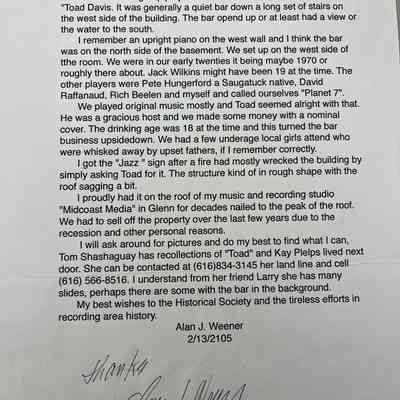 "Toad Davis. It was generally a quiet bar down a long set of stairs on
the west side of the building. The bar opend up or at least had a view or
the water to the south.
I remember an upright piano on the west wall and I think the bar
was on the north side of the basement. We set up on the west side of
tthe room. We were in our early twenties it being maybe 1970 or
roughly there about. Jack Wilkins might have been 19 at the time. The
other players were Pete Hungerford a Saugatuck native, David
Raffanaud, Rich Beelen and myself and called ourselves "Planet 7".
We played original music mostly and Toad seemed alright with that.
He was a gracious host and we made some money with a nominal
cover. The drinking age was 18 at the time and this turned the bar
business upsidedown. We had a few underage local girls attend who
were whisked away by upset fathers, if I remember correctly.
I got the "Jazz " sign after a fire had mostly wrecked the building by
simply asking Toad for it. The structure kind of in rough shape with the
roof sagging a bit.
I proudly had it on the roof of my music and recording studio
"Midcoast Media" in Glenn for decades nailed to the peak of the roof.
We had to sell off the property over the last few years due to the
recession and other personal reasons.
I will ask around for pictures and do my best to find what I can,
Tom Shashaguay has recollections of "Toad" and Kay Plelps lived next
door. She can be contacted at (616)834-3145 her land line and cell
(616) 566-8516. I understand from her friend Larry she has many
slides, perhaps there are some with the bar in the background.
My best wishes to the Historical Society and the tireless efforts in
recording area history.
Alan J. Weener
2/13/2105
thanks